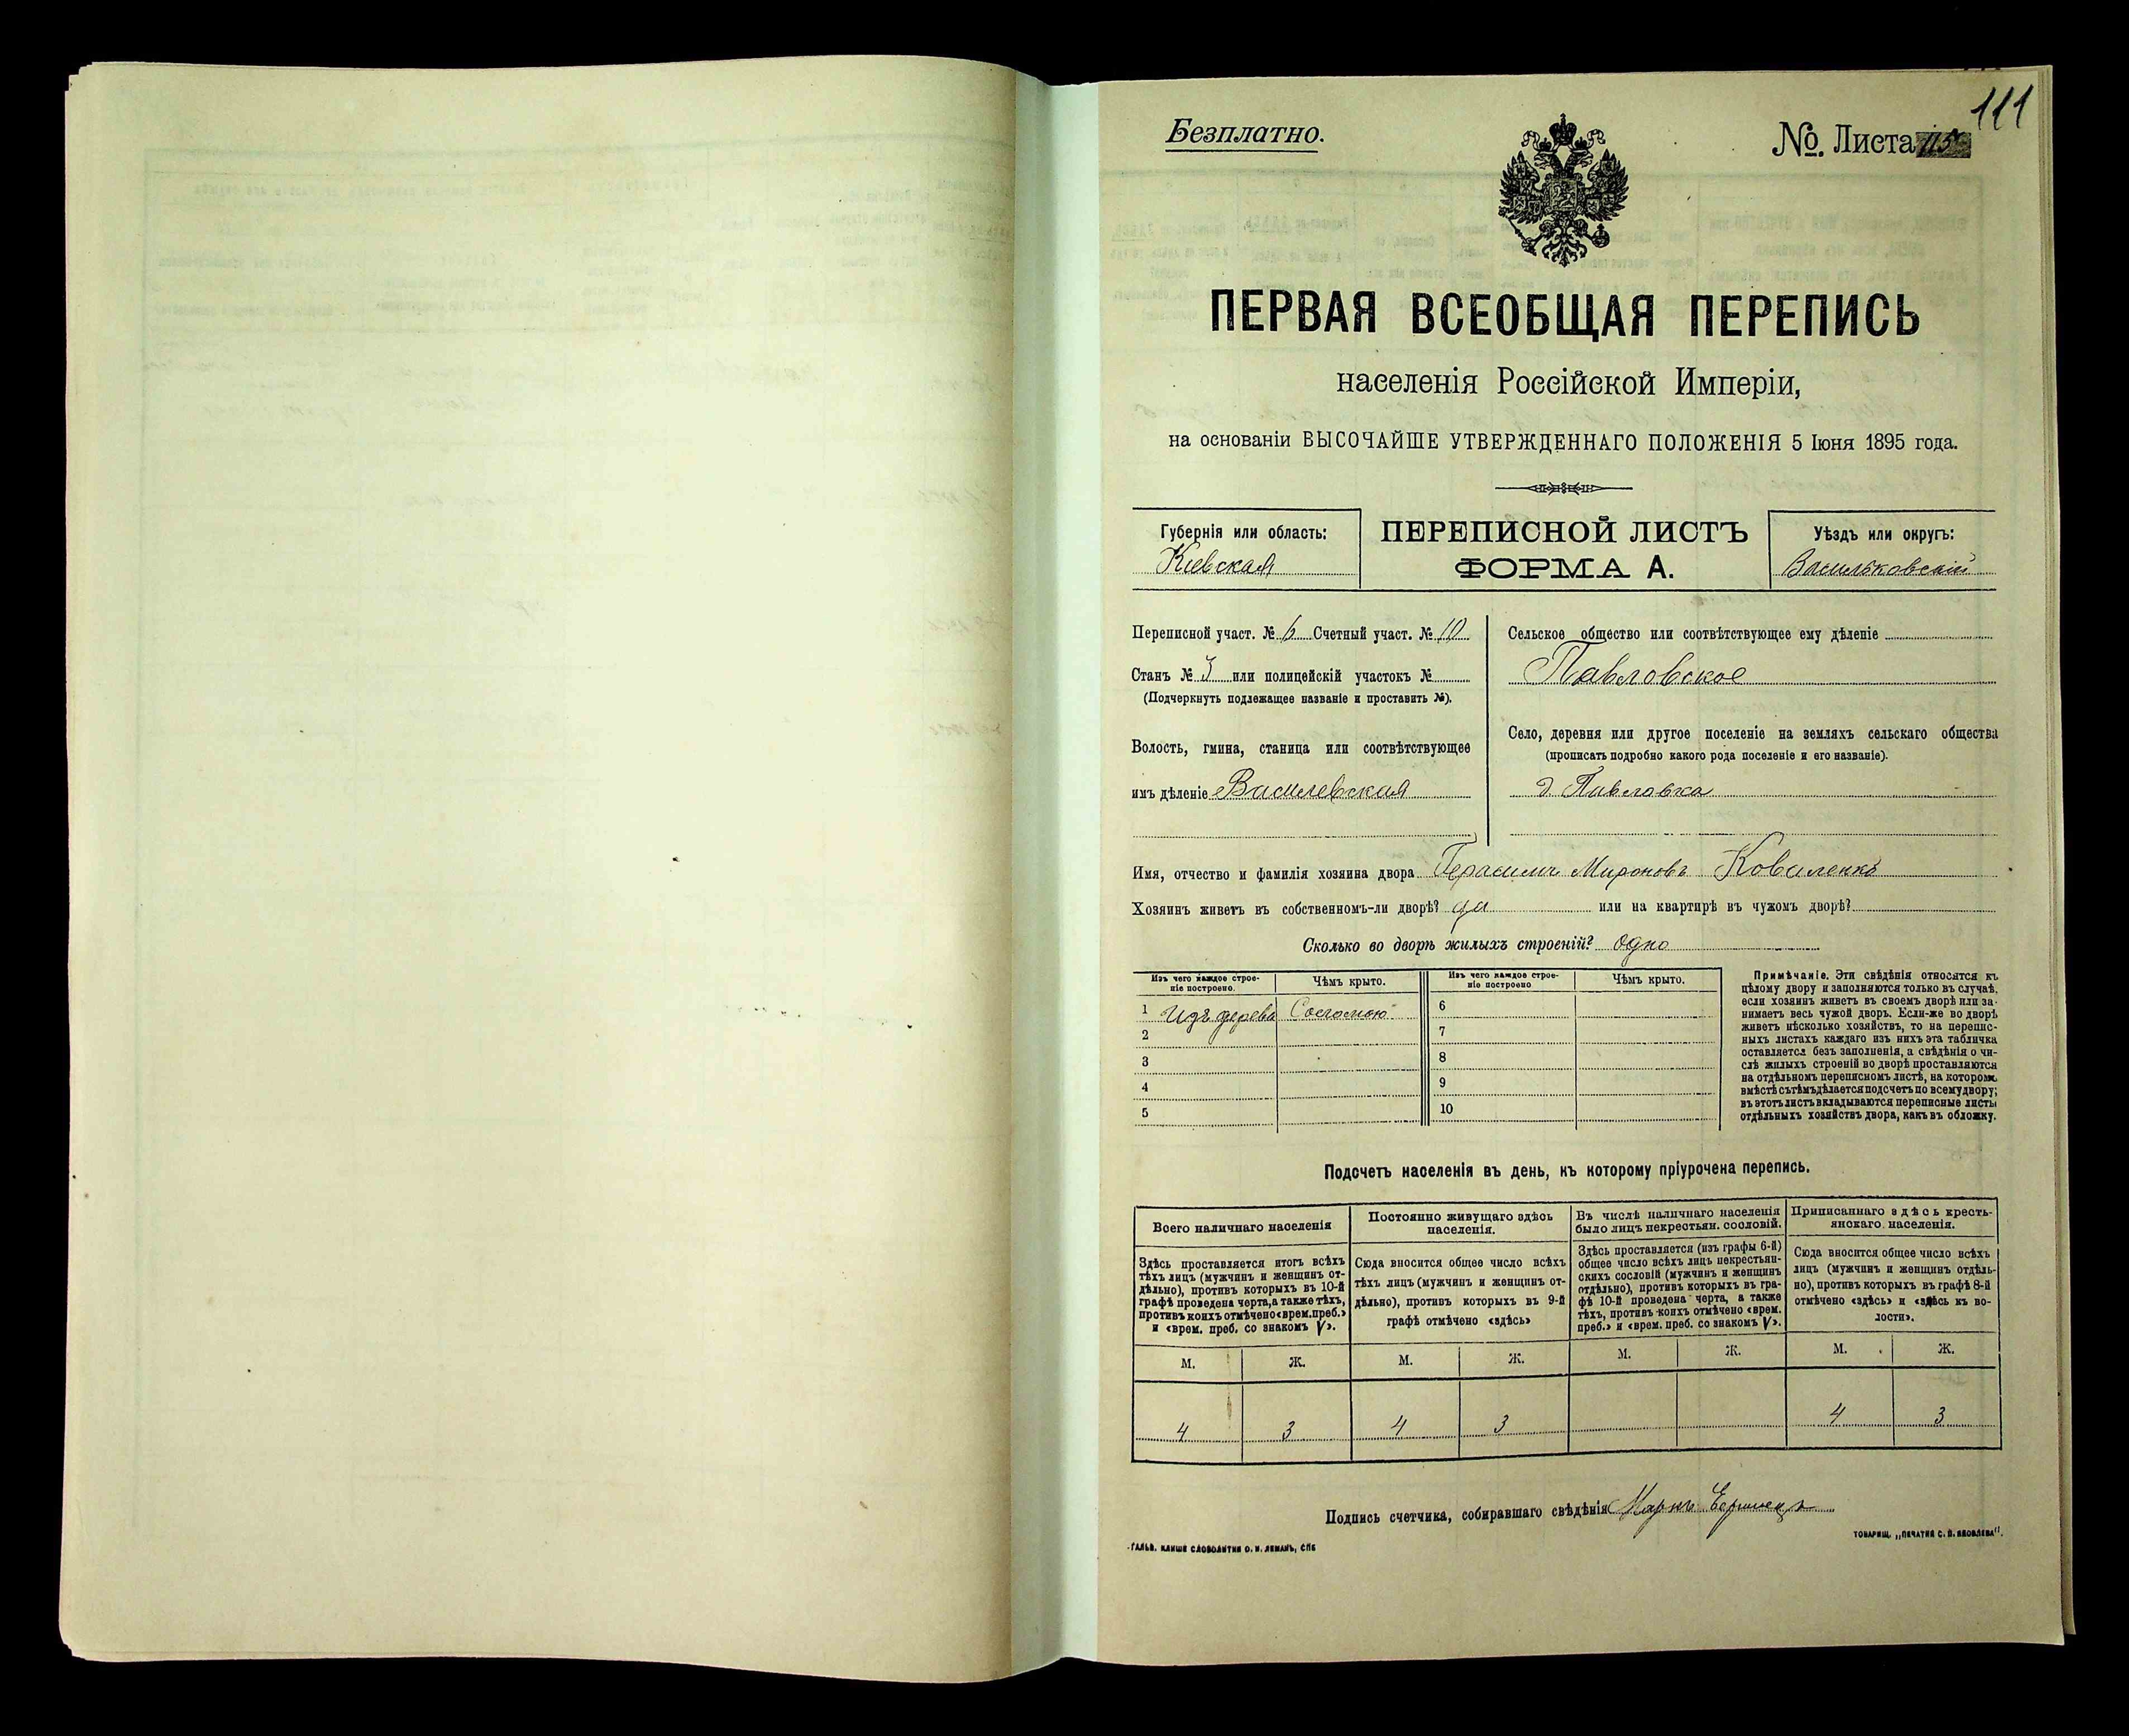 111
Безплатно.
№. Листа 115
ПЕРВАЯ ВСЕОБЩАЯ ПЕРЕПИСЬ
населенія Россійской Имперіи,
на основаніи ВЫСОЧАЙШЕ УТВЕРЖДЕННАГО ПОЛОЖЕНІЯ 5 Іюня 1895 года.
Губернія или область:
Кіевская
ПЕРЕПИСНОЙ ЛИСТЪ
ФОРМА А.
Уѣздъ или округъ:
Васильковскій
Переписной участ. № 6 Счетный участ. № 10
Станъ № 3 или полицейскій участокъ №
(Подчеркнуть подлежащее названіе и проставить №).
Волость, гмина, станица или соотвѣтствующее
имъ дѣленіе Василевская
Сельское общество или соотвѣтствующее ему дѣленіе
Павловское
Село, деревня или другое поселеніе на земляхъ сельскаго общества
(прописать подробно какого рода поселеніе и его названіе).
д. Павловка
Имя, отчество и фамилія хозяина двора Герасимъ Мироновъ Коваленко
Хозяинъ живетъ въ собственномъ-ли дворѣ? да или на квартирѣ въ чужомъ дворѣ?
Сколько во дворѣ жилыхъ строеній? одно
Изъ чего каждое строе-
ніе построено.
Чѣмъ крыто.
Изъ чего каждое строе-
ніе построено
Чѣмъ крыто.
1 Изъ дерева Соломою 6
2 7
3 8
4 9
5 10
Примѣчаніе. Эти свѣдѣнія относятся къ
цѣлому двору и заполняются только въ случаѣ,
если хозяинъ живетъ въ своемъ дворѣ или за-
нимаетъ весь чужой дворъ. Если-же во дворѣ
живетъ нѣсколько хозяйствъ, то на перепис-
ныхъ листахъ каждаго изъ нихъ эта табличка
оставляется безъ заполненія, а свѣдѣнія о чи-
слѣ жилыхъ строеній во дворѣ проставляются
на отдѣльномъ переписномъ листѣ, на которомъ
вмѣстѣ съ тѣмъ дѣлается подсчетъ по всему двору;
въ этотъ листъ вкладываются переписные листы
отдѣльныхъ хозяйствъ двора, какъ въ обложку.
Подсчетъ населенія въ день, къ которому пріурочена перепись.
Всего наличнаго населенія
Здѣсь проставляется итогъ всѣхъ
тѣхъ лицъ (мужчинъ и женщинъ от-
дѣльно), противъ которыхъ въ 10-й
графѣ проведена черта, а также тѣхъ,
противъ коихъ отмѣчено «врем. преб.»
и «врем. преб. со знакомъ V».
Постоянно живущаго здѣсь
населенія.
Сюда вносится общее число всѣхъ
тѣхъ лицъ (мужчинъ и женщинъ от-
дѣльно), противъ которыхъ въ 9-й
графѣ отмѣчено «здѣсь»
Въ числѣ наличнаго населенія
было лицъ некрестьян. сословій.
Здѣсь проставляется (изъ графы 6-й)
общее число всѣхъ лицъ некрестьян-
скихъ сословій (мужчинъ и женщинъ
отдѣльно), противъ которыхъ въ гра-
фѣ 10-й проведена черта, а также
тѣхъ, противъ коихъ отмѣчено «врем.
преб.» и «врем. преб. со знакомъ V».
Приписаннаго здѣсь кресть-
янскаго населенія.
Сюда вносится общее число всѣхъ
лицъ (мужчинъ и женщинъ отдѣль-
но), противъ которыхъ въ графѣ 8-й
отмѣчено «здѣсь» и «здѣсь къ во-
лости».
М. Ж. М. Ж. М. Ж. М. Ж.
4 3 4 3 4 3
Подпись счетчика, собиравшаго свѣдѣнія Маркъ
ГАЛЬВ. КЛИШЕ СЛОВОЛИТНИ О. И. ЛЕМАНЪ, СПБ
ТОВАРИЩ. „ПЕЧАТНЯ С. П. ЯКОВЛЕВА".